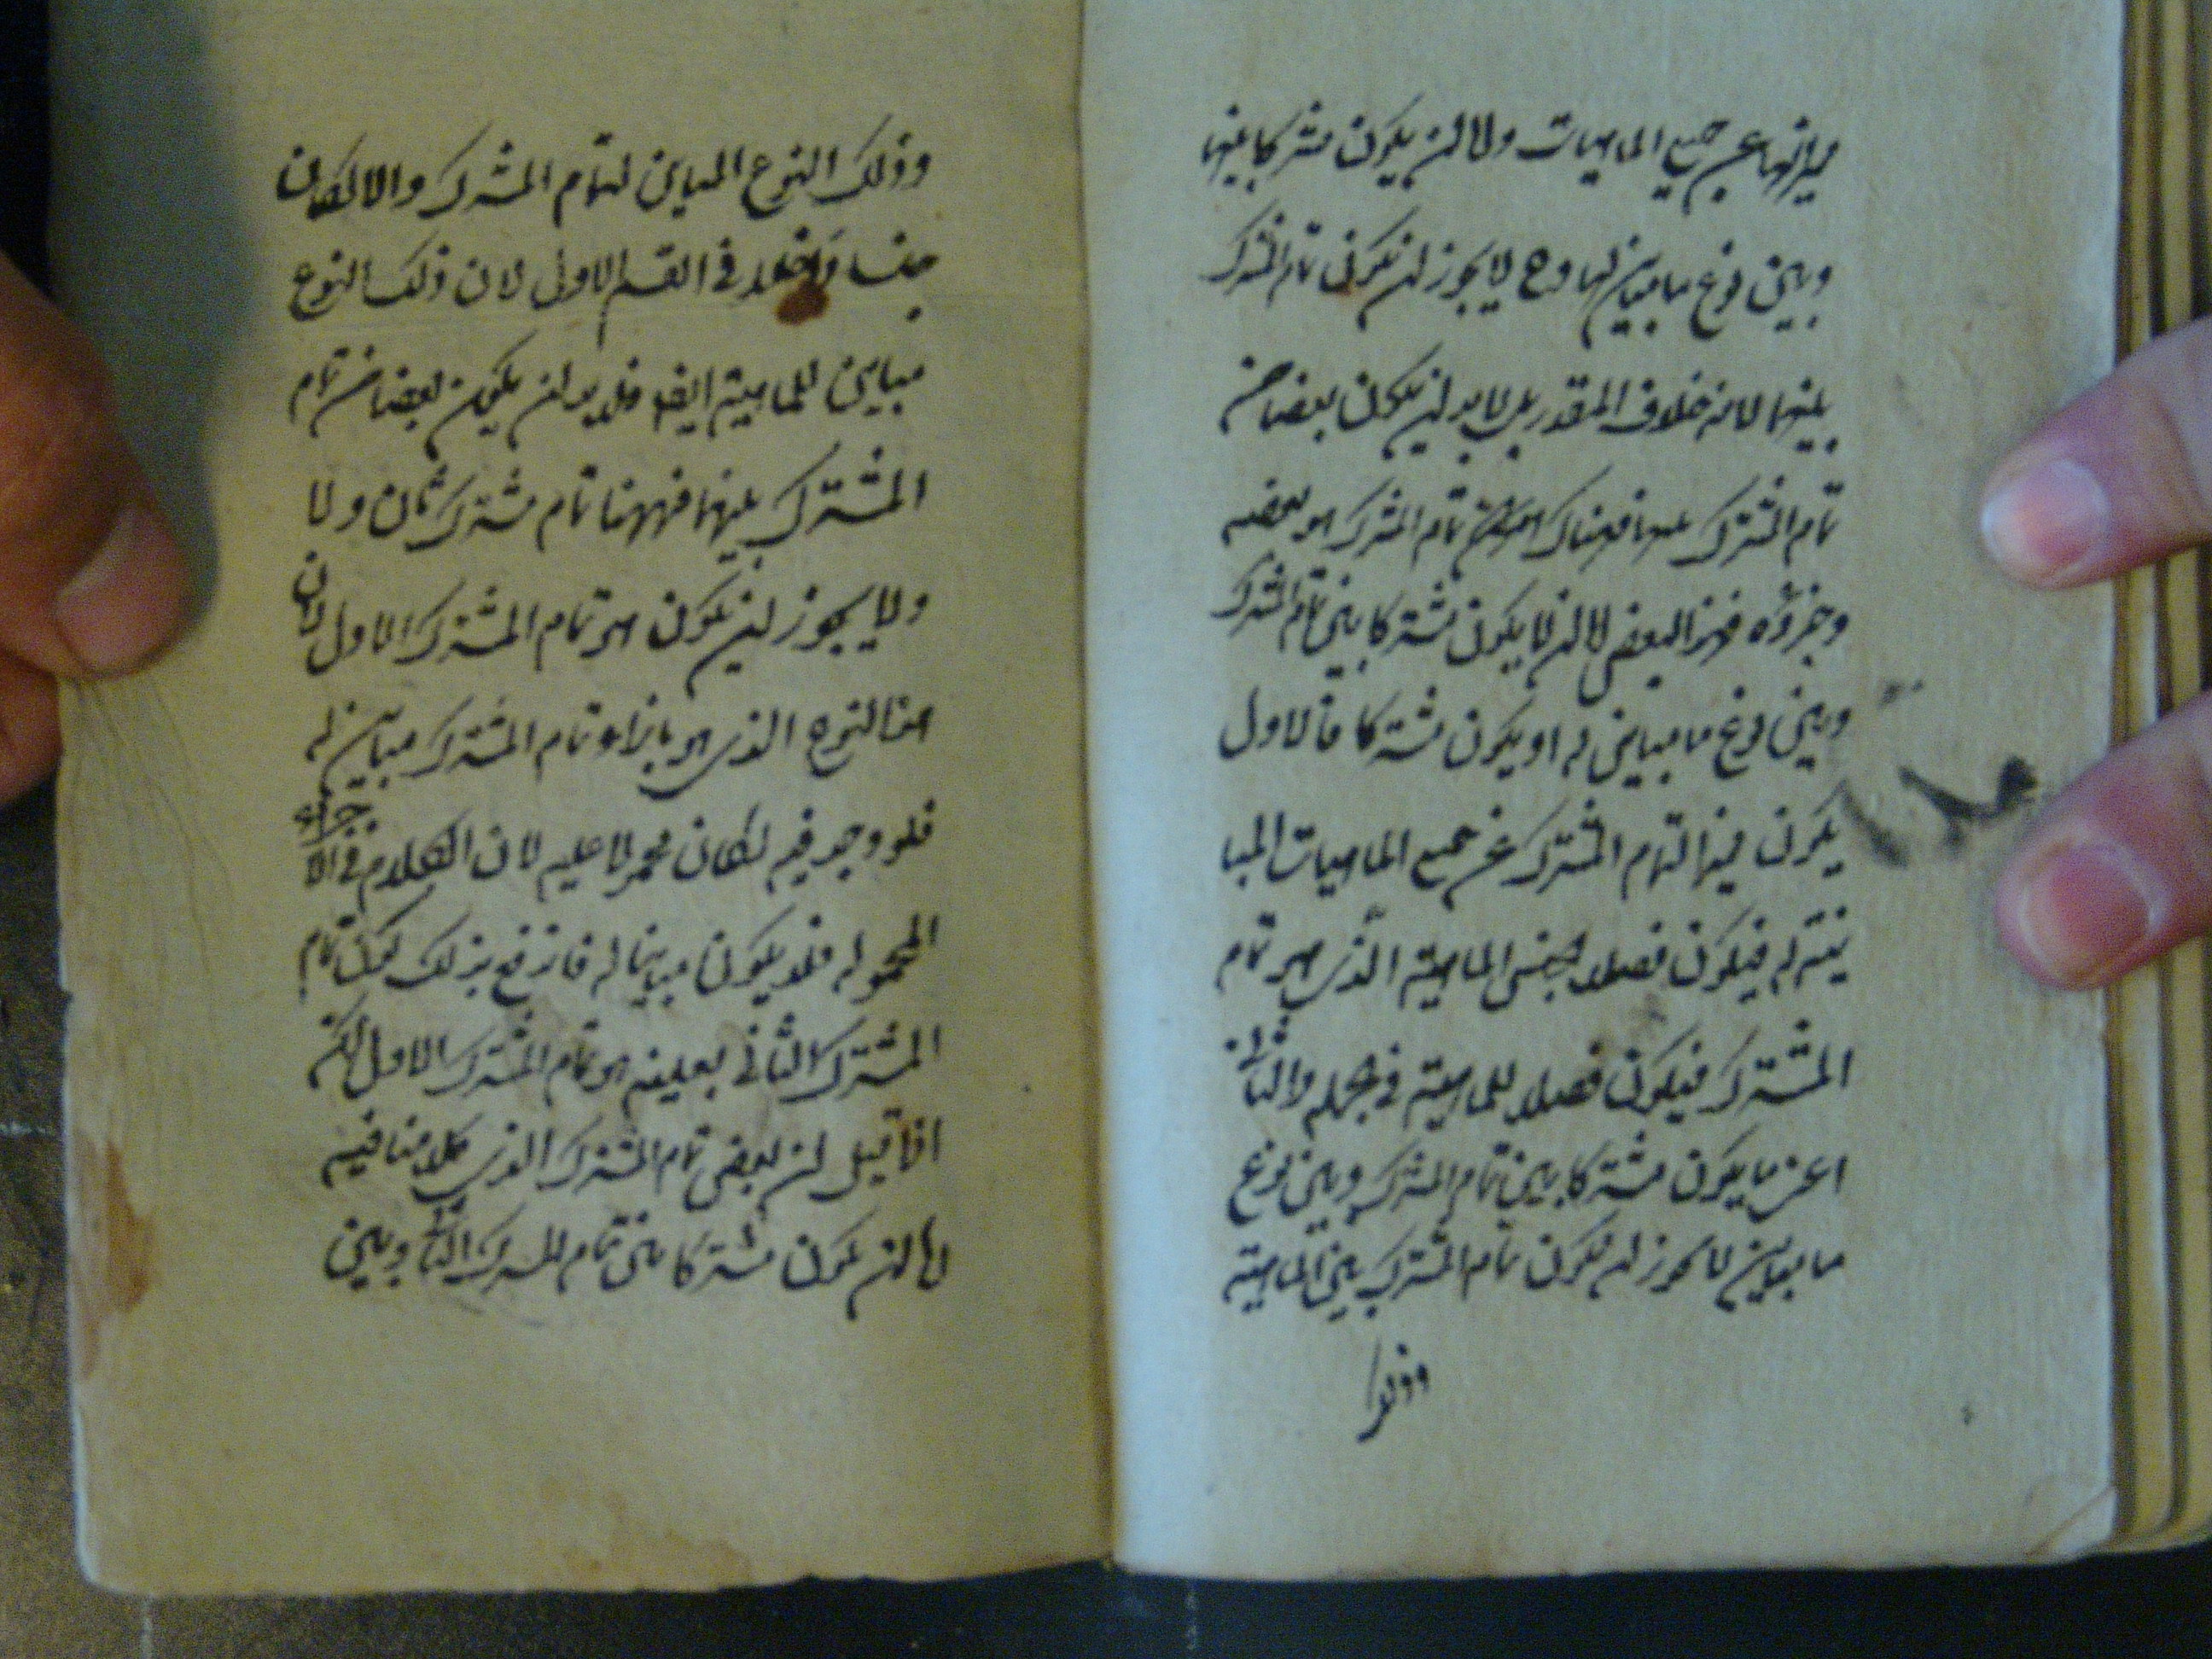 ميزانها عن جميع الماهيات ولا لن يكون مشتركا بينها
وبين نوع ما مباين لها وح لا يجوز لن يكون تمام المشترك
بينهما لانه خلاف المقدر بل لا بد لن يكون بعضا من
تمام المشترك بينهما فهناك تمام المشترك هو بعضه
وجزؤه فهذا البعض لا لن لا يكون مشتركا بين تمام المشترك
وبين نوع ما مباين له او يكون مشتركا فالاول
يكون مميزا لتمام المشترك عن جميع الماهيات المبا
ينة له فيكون فصلا لجنس الماهية الذى هو تمام
المشترك فيكون فصلا للماهية فى الجملة والثانى
اعنى ما يكون مشتركا بين تمام المشترك وبين نوع
ما مباين لا يجوز لن يكون تمام المشترك بين الماهية
وذلك
وذلك النوع المباين لتمام المشترك والا لكان
جنسا داخلا فى القسم الاول لان ذلك النوع
مباين للماهية ايضا فلا بد لن يكون بعضا من تمام
المشترك بينهما فههنا تمام مشترك ثان ولا
ولا يجوز لن يكون هو تمام المشترك الاول لان
هذا النوع الذى هو بازاء تمام المشترك مباين له
فلو وجد فيه لكان محمولا عليه لان الكلام فى الاجزاء
المحمولة فلا يكون مباينا له فاندفع بذلك كون تمام
المشترك الثانى بعينه هو تمام المشترك الاول لكنه
اذا قيل لن بعض تمام المشترك الذى كلامنا فيه
لا لن يكون مشتركا بين تمام المشترك الثانى وبين